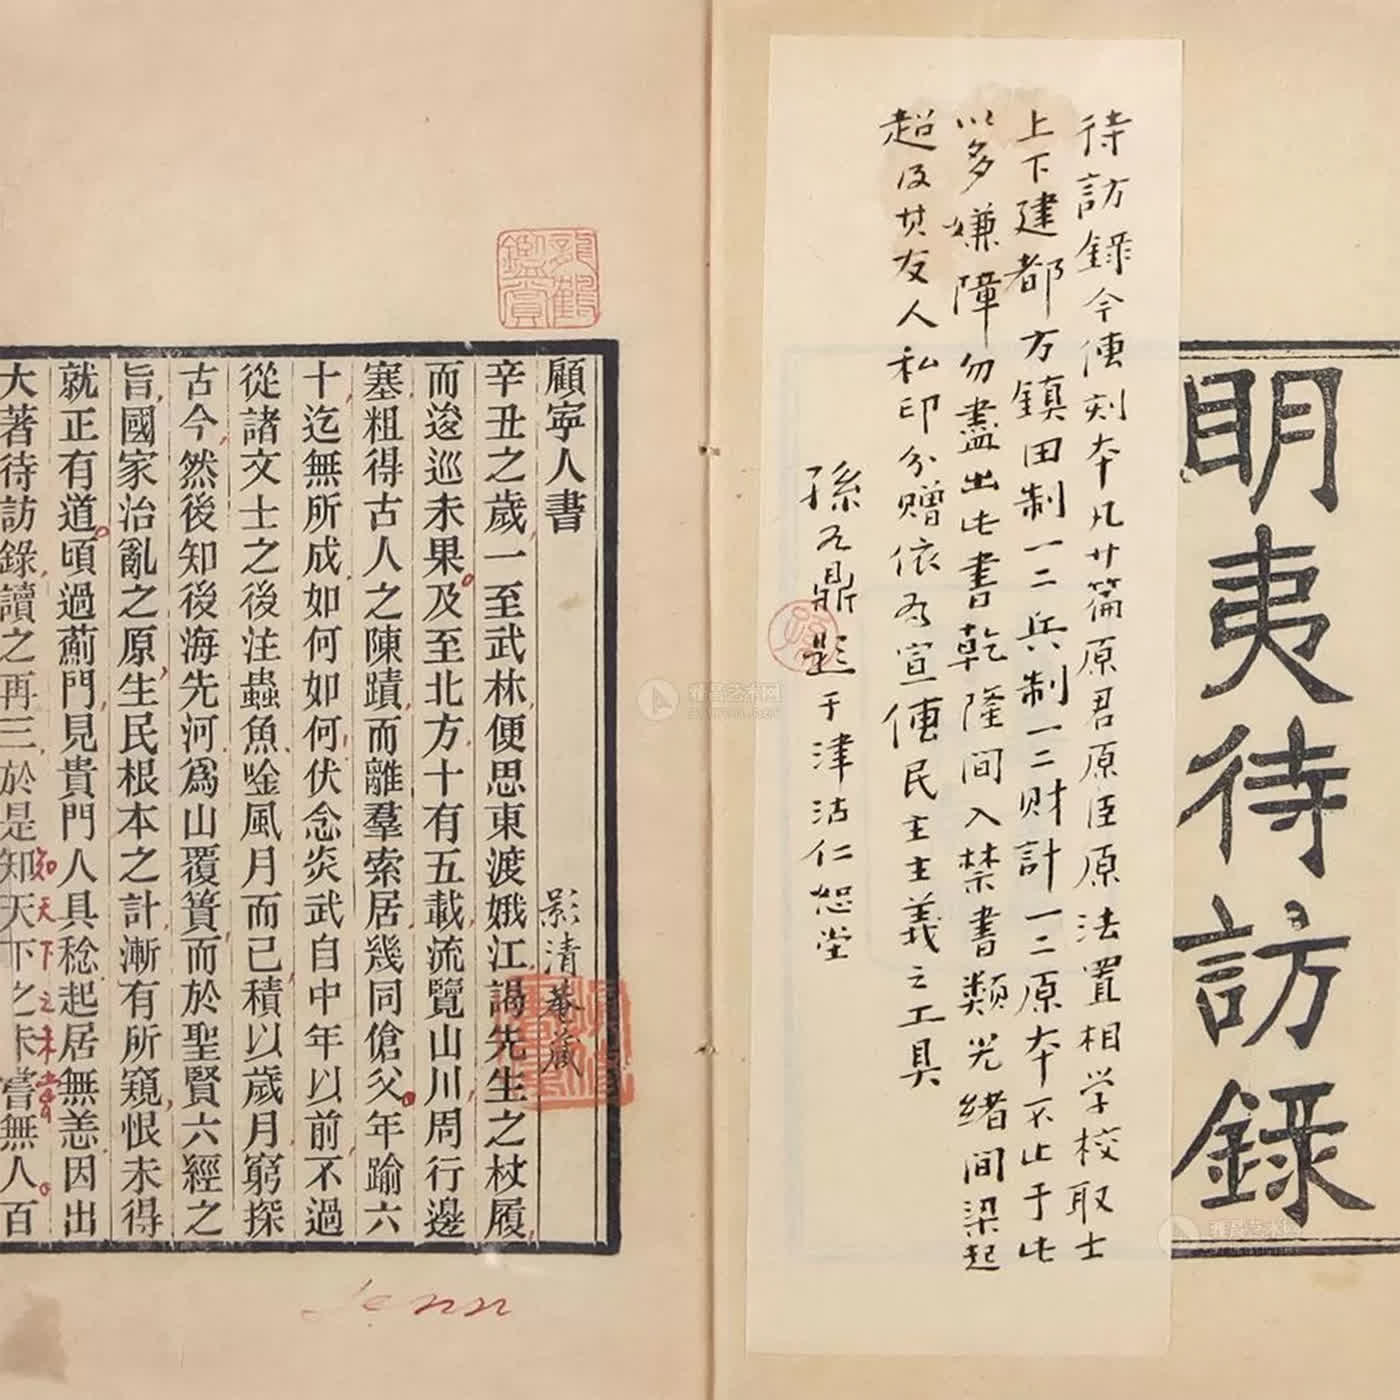 明夷待訪錄
待訪錄今傳刻本凡廿篇原君原臣原法置相学校取士
上下建都方鎮田制一二兵制一二財計一二原本不止于此
以多嫌障勿盡出此書乾隆间入禁書類光緒间梁起
超及其友人私印分贈依为宣傳民主主義之工具
孫九鼎題于津沽仁恕堂
顧寧人書
影清菴藏
辛丑之歲一至武林便思東渡娥江謁先生之杖履
而逡巡未果及至北方十有五載流覽山川周行邊
塞粗得古人之陳蹟而離羣索居幾同傖父年踰六
十迄無所成如何如何伏念炎武自中年以前不過
從諸文士之後注蟲魚唫風月而已積以歲月窮探
古今然後知後海先河爲山覆簣而於聖賢六經之
旨國家治亂之原生民根本之計漸有所窺恨未得
就正有道頃過薊門見貴門人具稔起居無恙因出
大著待訪錄讀之再三於是知天下之未嘗無人百
知天下之未嘗
鑑賞
雅昌艺术网